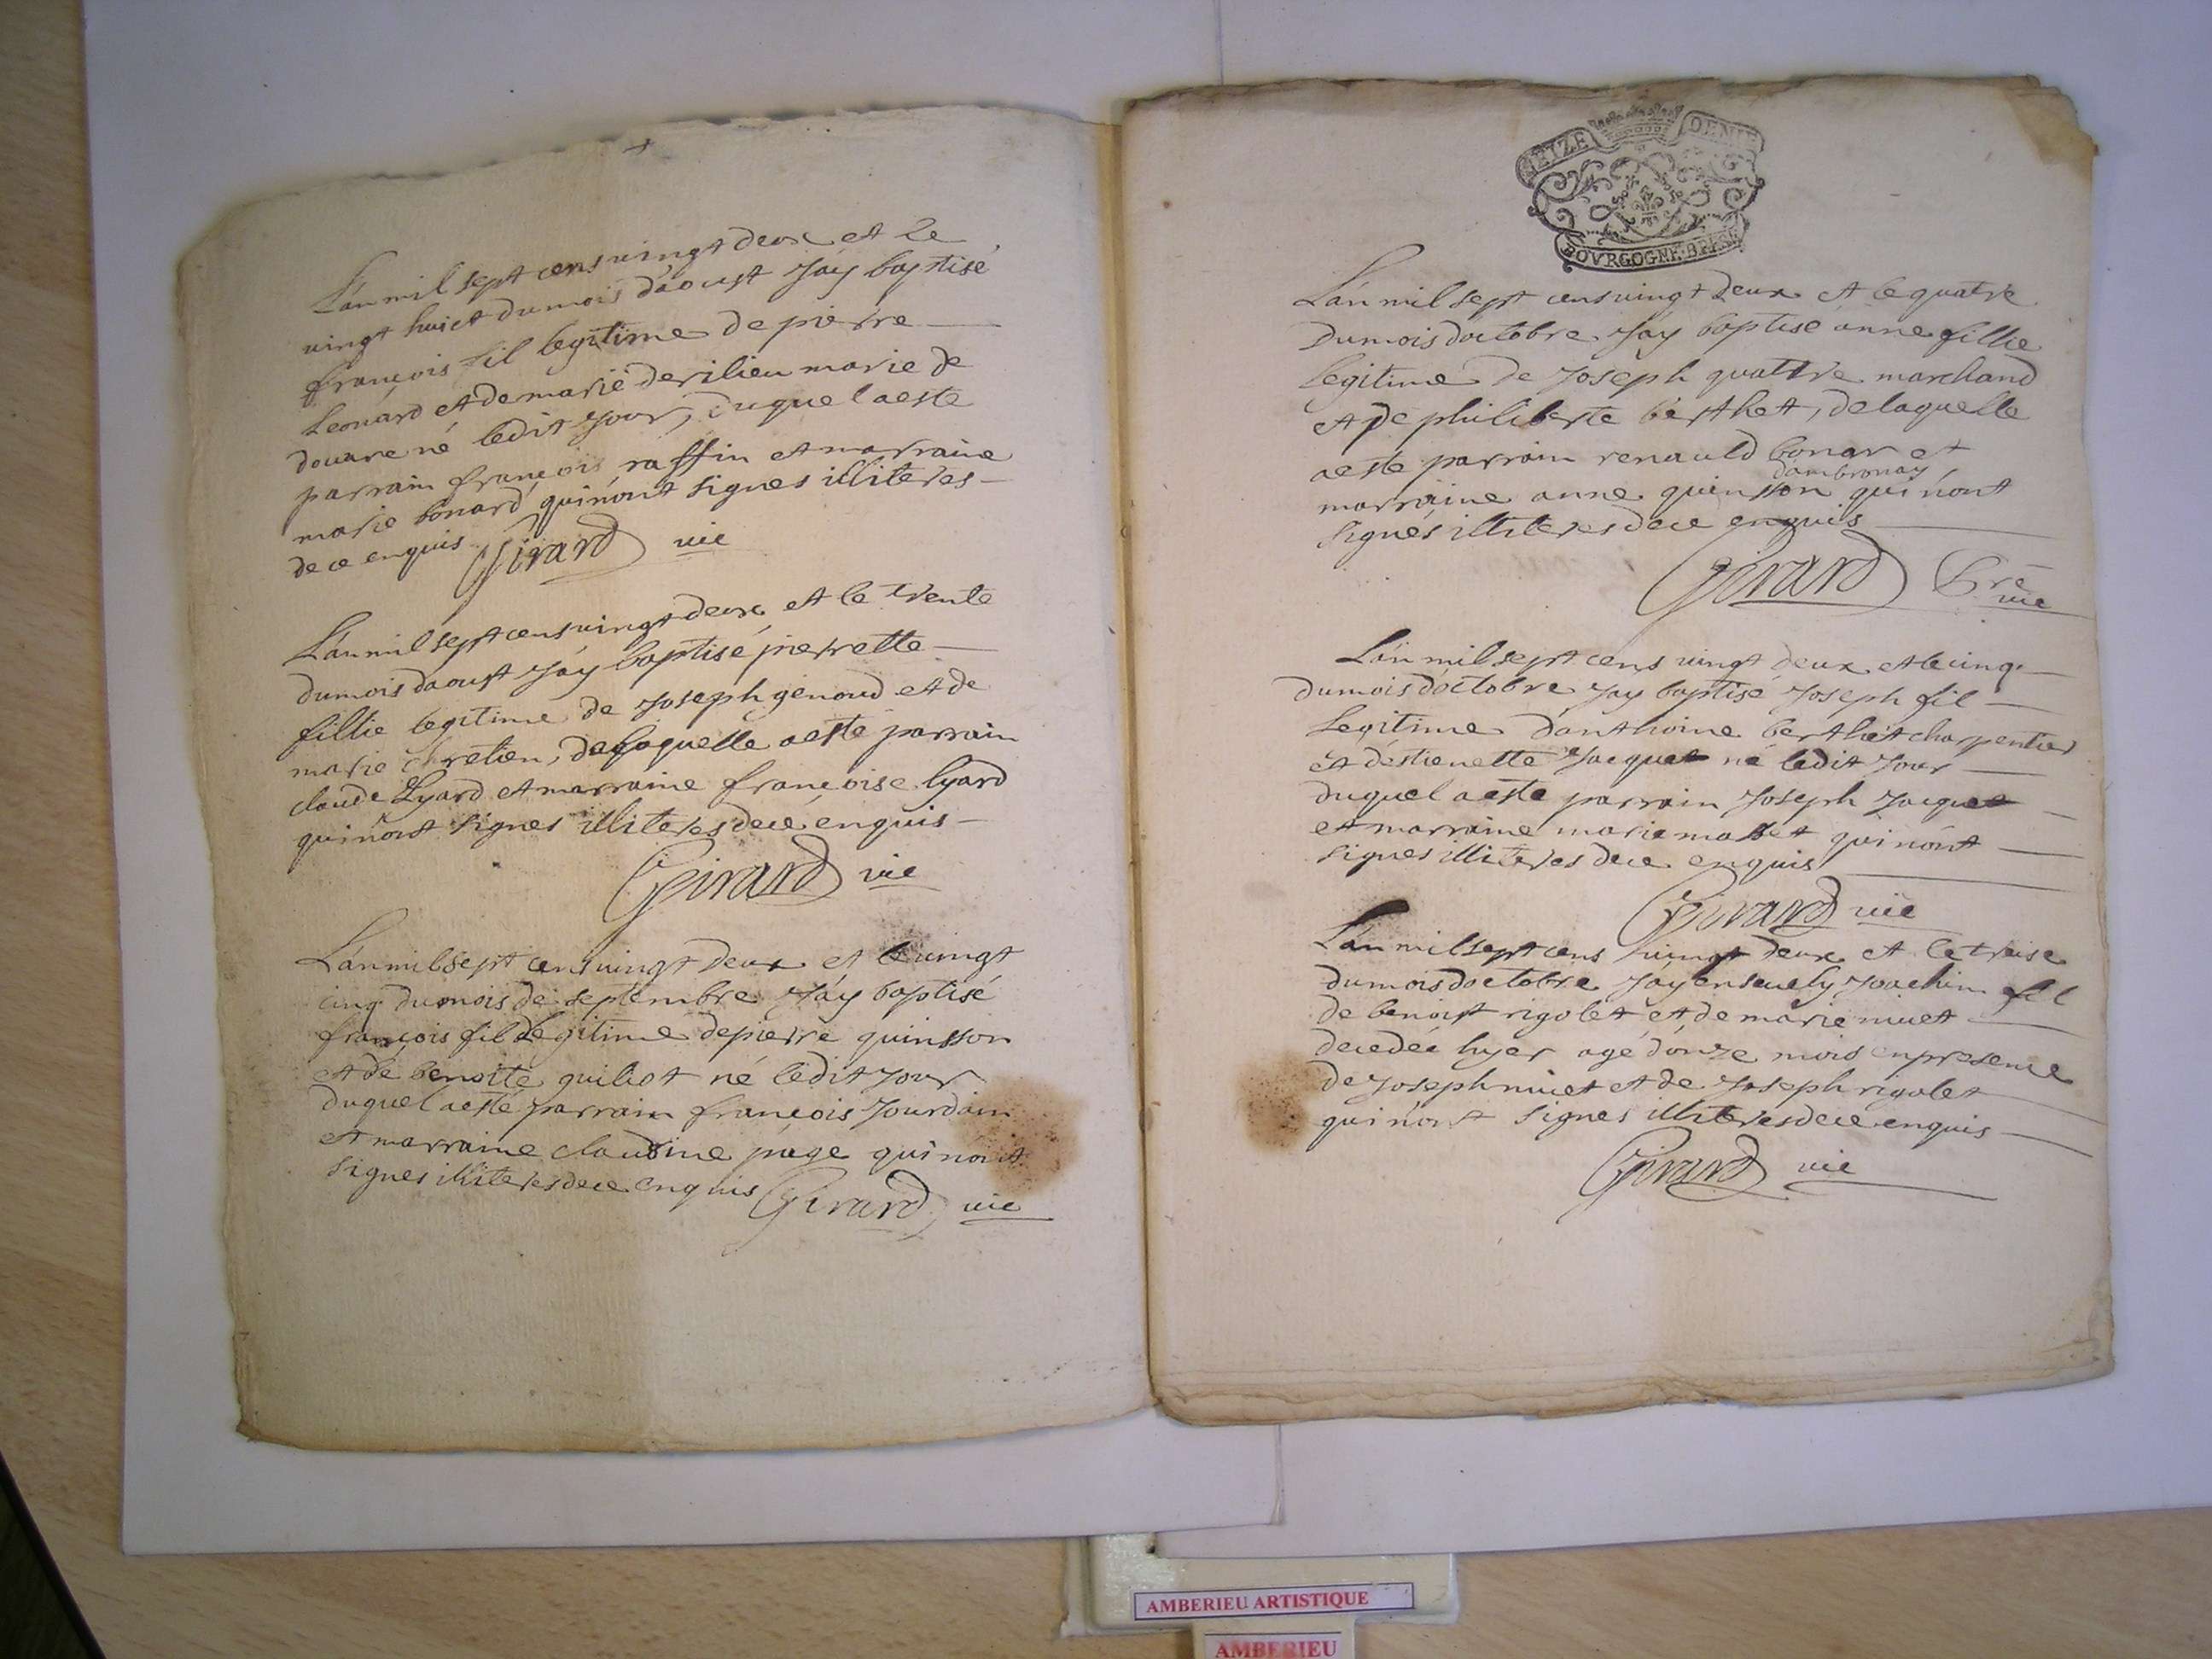 L'an mil sept cens vingt deux et le
vingt huict du mois d'aoust j'ay baptisé
françois fil legitime de pierre
Leonard et de marie derilieu marie de
douare né ledit jour, duquel a esté
parrain françois raffin et marraine
marie bonard qui n'ont signes illiteres
de ce enquis Girard vic
L'an mil sept cens vingt deux et le trente
du mois d'aoust j'ay baptisé pierrette
fillie legitime de joseph genoud et de
marie chretien, de laquelle a esté parrain
claude Lyard et marraine françoise lyard
qui n'ont signes illiteres de ce enquis
Girard vic
L'an mil sept cens vingt deux et le vingt
cinq du mois de septembre j'ay baptisé
françois fil legitime de pierre quinsson
et de benoite guiliot né ledit jour
duquel a esté parrain françois jourdain
et marraine claudine page qui n'ont
signes illiteres de ce enquis Girard vic
SEIZE DENIE
BOVRGOGNE BRESSE
L'an mil sept cens vingt deux et le quatre
du mois d'octobre j'ay baptisé anne fillie
legitime de joseph quattre marchand
et de philiberte berthet, de laquelle
a esté parrain renauld bonar et
d'ambronay
marraine anne quinsson qui n'ont
signés illiteres de ce enquis
Girard Pre
vic
L'an mil sept cens vingt deux et le cinq
du mois d'octobre j'ay baptisé joseph fil
legitime d'anthoine berthet charpentier
et d'estienette jacquet né ledit jour
duquel a esté parrain joseph jacquet
et marraine marie masset qui n'ont
signes illiteres de ce enquis
Girard vic
L'an mil sept cens vingt deux et le treise
du mois d'octobre j'ay enseuely joachim fil
de benoist rigolet et de marie niuet
decedée hyer agé d'onze mois en presence
de joseph niuet et de joseph rigolet
qui n'ont signes illiteres de ce enquis
Girard vic
AMBERIEU ARTISTIQUE
AMBERIEU